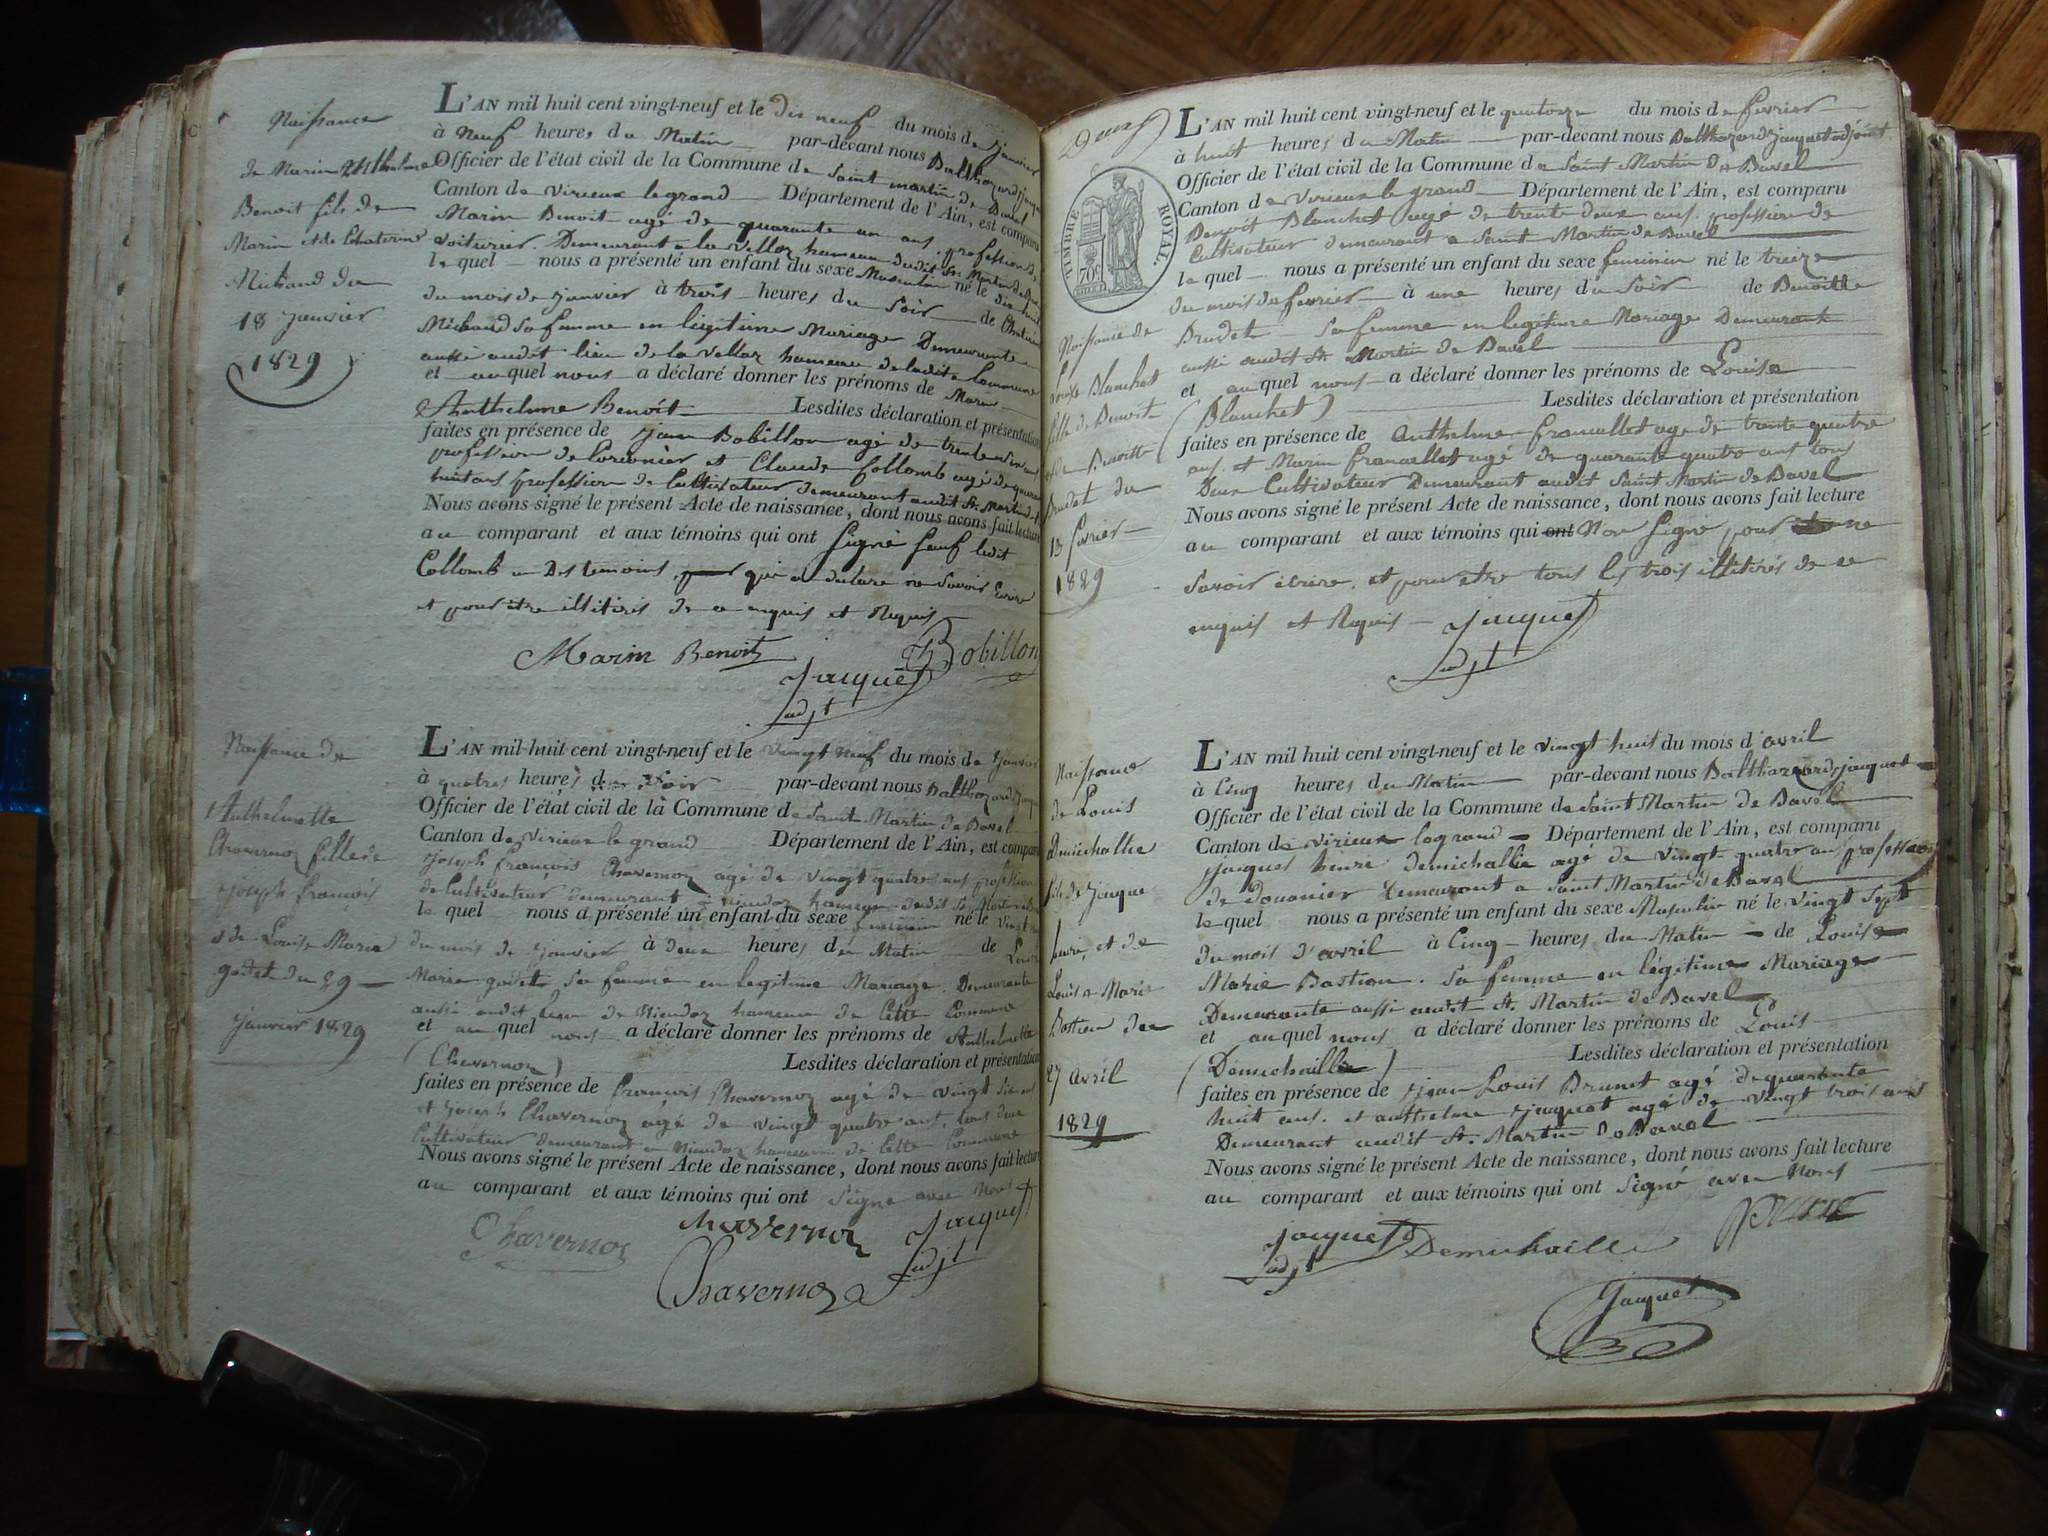 Naissance
de Marin Anthelme
Benoit fils de
Marin et de Chaterine
Michaud du
18 janvier
1829
L'AN mil huit cent vingt-neuf et le dix neuf du mois de janvier
à Neuf heures du Matin par-devant nous Balthazard jacquet
Officier de l'état civil de la Commune de Saint martin de Bavel
Canton de virieux le grand Département de l'Ain, est comparu
Marin Benoit agé de quarante un ans profession de
voiturier. Demeurant a la vellaz hameau dudit St. Martin de Bavel
le quel nous a présenté un enfant du sexe Masculin né le dix huit
du mois de janvier à trois heures du Soir de Chaterine
Michaud Sa femme en légitime Mariage Demeurante
aussi audit lieu de la vellaz hameau de ladite Commune
et auquel nous a déclaré donner les prénoms de Marin
Anthelme Benoit Lesdites déclaration et présentation
faites en présence de jean Bobillon agé de trente six ans
profession de Cordonier et Claude Collomb agé de quarante
huit ans profession de Cultivateur demeurant audit St. Martin
Nous avons signé le présent Acte de naissance, dont nous avons fait lecture
au comparant et aux témoins qui ont Signé Sauf ledit
Collomb un Des temoins qui a declaré ne Savoir Ecrire
et pour être illitirés de ce enquis et Requis
Marin Benoit Bobillon
Jacquet
adjt
Naissance de
Anthelmette
Chavernoz fille de
joseph françois
et de Louise Marie
godet du 29
janvier 1829
L'AN mil huit cent vingt-neuf et le vingt neuf du mois de janvier
à quatres heures du Soir par-devant nous Balthazard jacquet
Officier de l'état civil de la Commune de Saint Martin de Bavel
Canton de Virieux le grand Département de l'Ain, est comparu
joseph françois Chavernoz agé de vingt quatre ans profession
de Cultivateur demeurant a hameau dudit St. Martin de Bavel
le quel nous a présenté un enfant du sexe feminin né le vingt
du mois de janvier à deux heures du Matin de Louise
Marie godet Sa femme en legitime Mariage. Demeurante
aussi audit lieu de hameau de Cette Commune
et au quel nous a déclaré donner les prénoms de Anthelmette
(Chavernoz) Lesdites déclaration et présentation
faites en présence de françois Chavernoz agé de vingt six ans
et joseph Chavernoz agé de vingt quatre ans. tous deux
Cultivateur demeurant a hameau de Cette Commune
Nous avons signé le présent Acte de naissance, dont nous avons fait lecture
au comparant et aux témoins qui ont Signé avec Nous
Chavernoz Chavernoz Jacquet
adjt
Chavernoz
Deux
TIMBRE ROYAL.
70c
Naissance de
Louise Blanchet
fille de Benoit
et de Benoitte
Brudet du
13 fevrier
1829
L'AN mil huit cent vingt-neuf et le quatorze du mois de fevrier
à huit heures du Matin par-devant nous Balthazard jacquet adjoint
Officier de l'état civil de la Commune de Saint Martin de Bavel
Canton de Virieux le grand Département de l'Ain, est comparu
Benoit Blanchet agé de trente deux ans profession de
Cultivateur demeurant a Saint Martin de Bavel
le quel nous a présenté un enfant du sexe feminin né le treize
du mois de fevrier à une heures du Soir de Benoitte
Brudet Sa femme en legitime Mariage Demeurante
aussi audit St Martin de Bavel
et auquel nous a déclaré donner les prénoms de Louise
(Blanchet) Lesdites déclaration et présentation
faites en présence de Anthelme francallet agé de trente quatre
ans et Marin francallet agé de quarante quatre ans tous
Deux Cultivateur Demeurant audit Saint Martin de Bavel
Nous avons signé le présent Acte de naissance, dont nous avons fait lecture
au comparant et aux témoins qui ont Non Signé pour ne
Savoir écrire. et pour etre tous les trois illitirés de ce
enquis et Requis Jacquet
adjt
Naissance
de Louis
Demichallie
fils de Jacque
henri et de
Louise Marie
Bastion du
27 avril
1829
L'AN mil huit cent vingt-neuf et le vingt huit du mois d'avril
à Cinq heures du Matin par-devant nous Balthazard jacquet
Officier de l'état civil de la Commune de Saint Martin de Bavel
Canton de virieux legrand Département de l'Ain, est comparu
jacques henri demichallie agé de vingt quatre ans profession
de douanier Demeurant a Saint Martin de Bavel
le quel nous a présenté un enfant du sexe Masculin né le vingt Sept
du mois d'avril à Cinq heures du Matin de Louise
Marie Bastion. Sa femme en légitime Mariage
Demeurante aussi audit St. Martin de Bavel
et auquel nous a déclaré donner les prénoms de Louis
(Demichaillie) Lesdites déclaration et présentation
faites en présence de jean Louis Brunet agé de quarante
huit ans. et anthelme jacquet agé de vingt trois ans
Demeurant audit St. Martin de Bavel
Nous avons signé le présent Acte de naissance, dont nous avons fait lecture
au comparant et aux témoins qui ont Signé avec Nous
Jacquet Demichaille
adjt
Jacquet